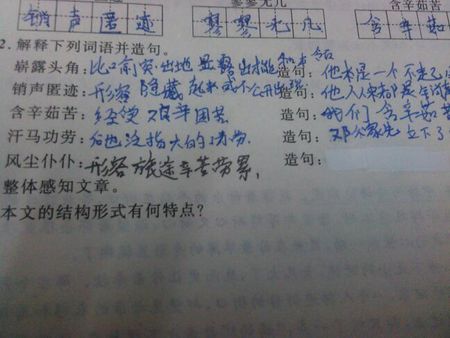 销声匿迹 寥寥无几 含辛茹
寥寥无几 含辛茹苦
2.解释下列词语并造句。
崭露头角：比之前突出地显露出 造句：他不是一个不
销声匿迹：形容隐藏起来或不公开出现 造句：他入
含辛茹苦：经受艰辛困苦 造句：我们含辛茹苦
汗马功劳：后也泛指大的功劳 造句：邓 立下了
风尘仆仆：形容旅途辛苦劳累， 造句：
整体感知文章。
本文的结构形式有何特点？